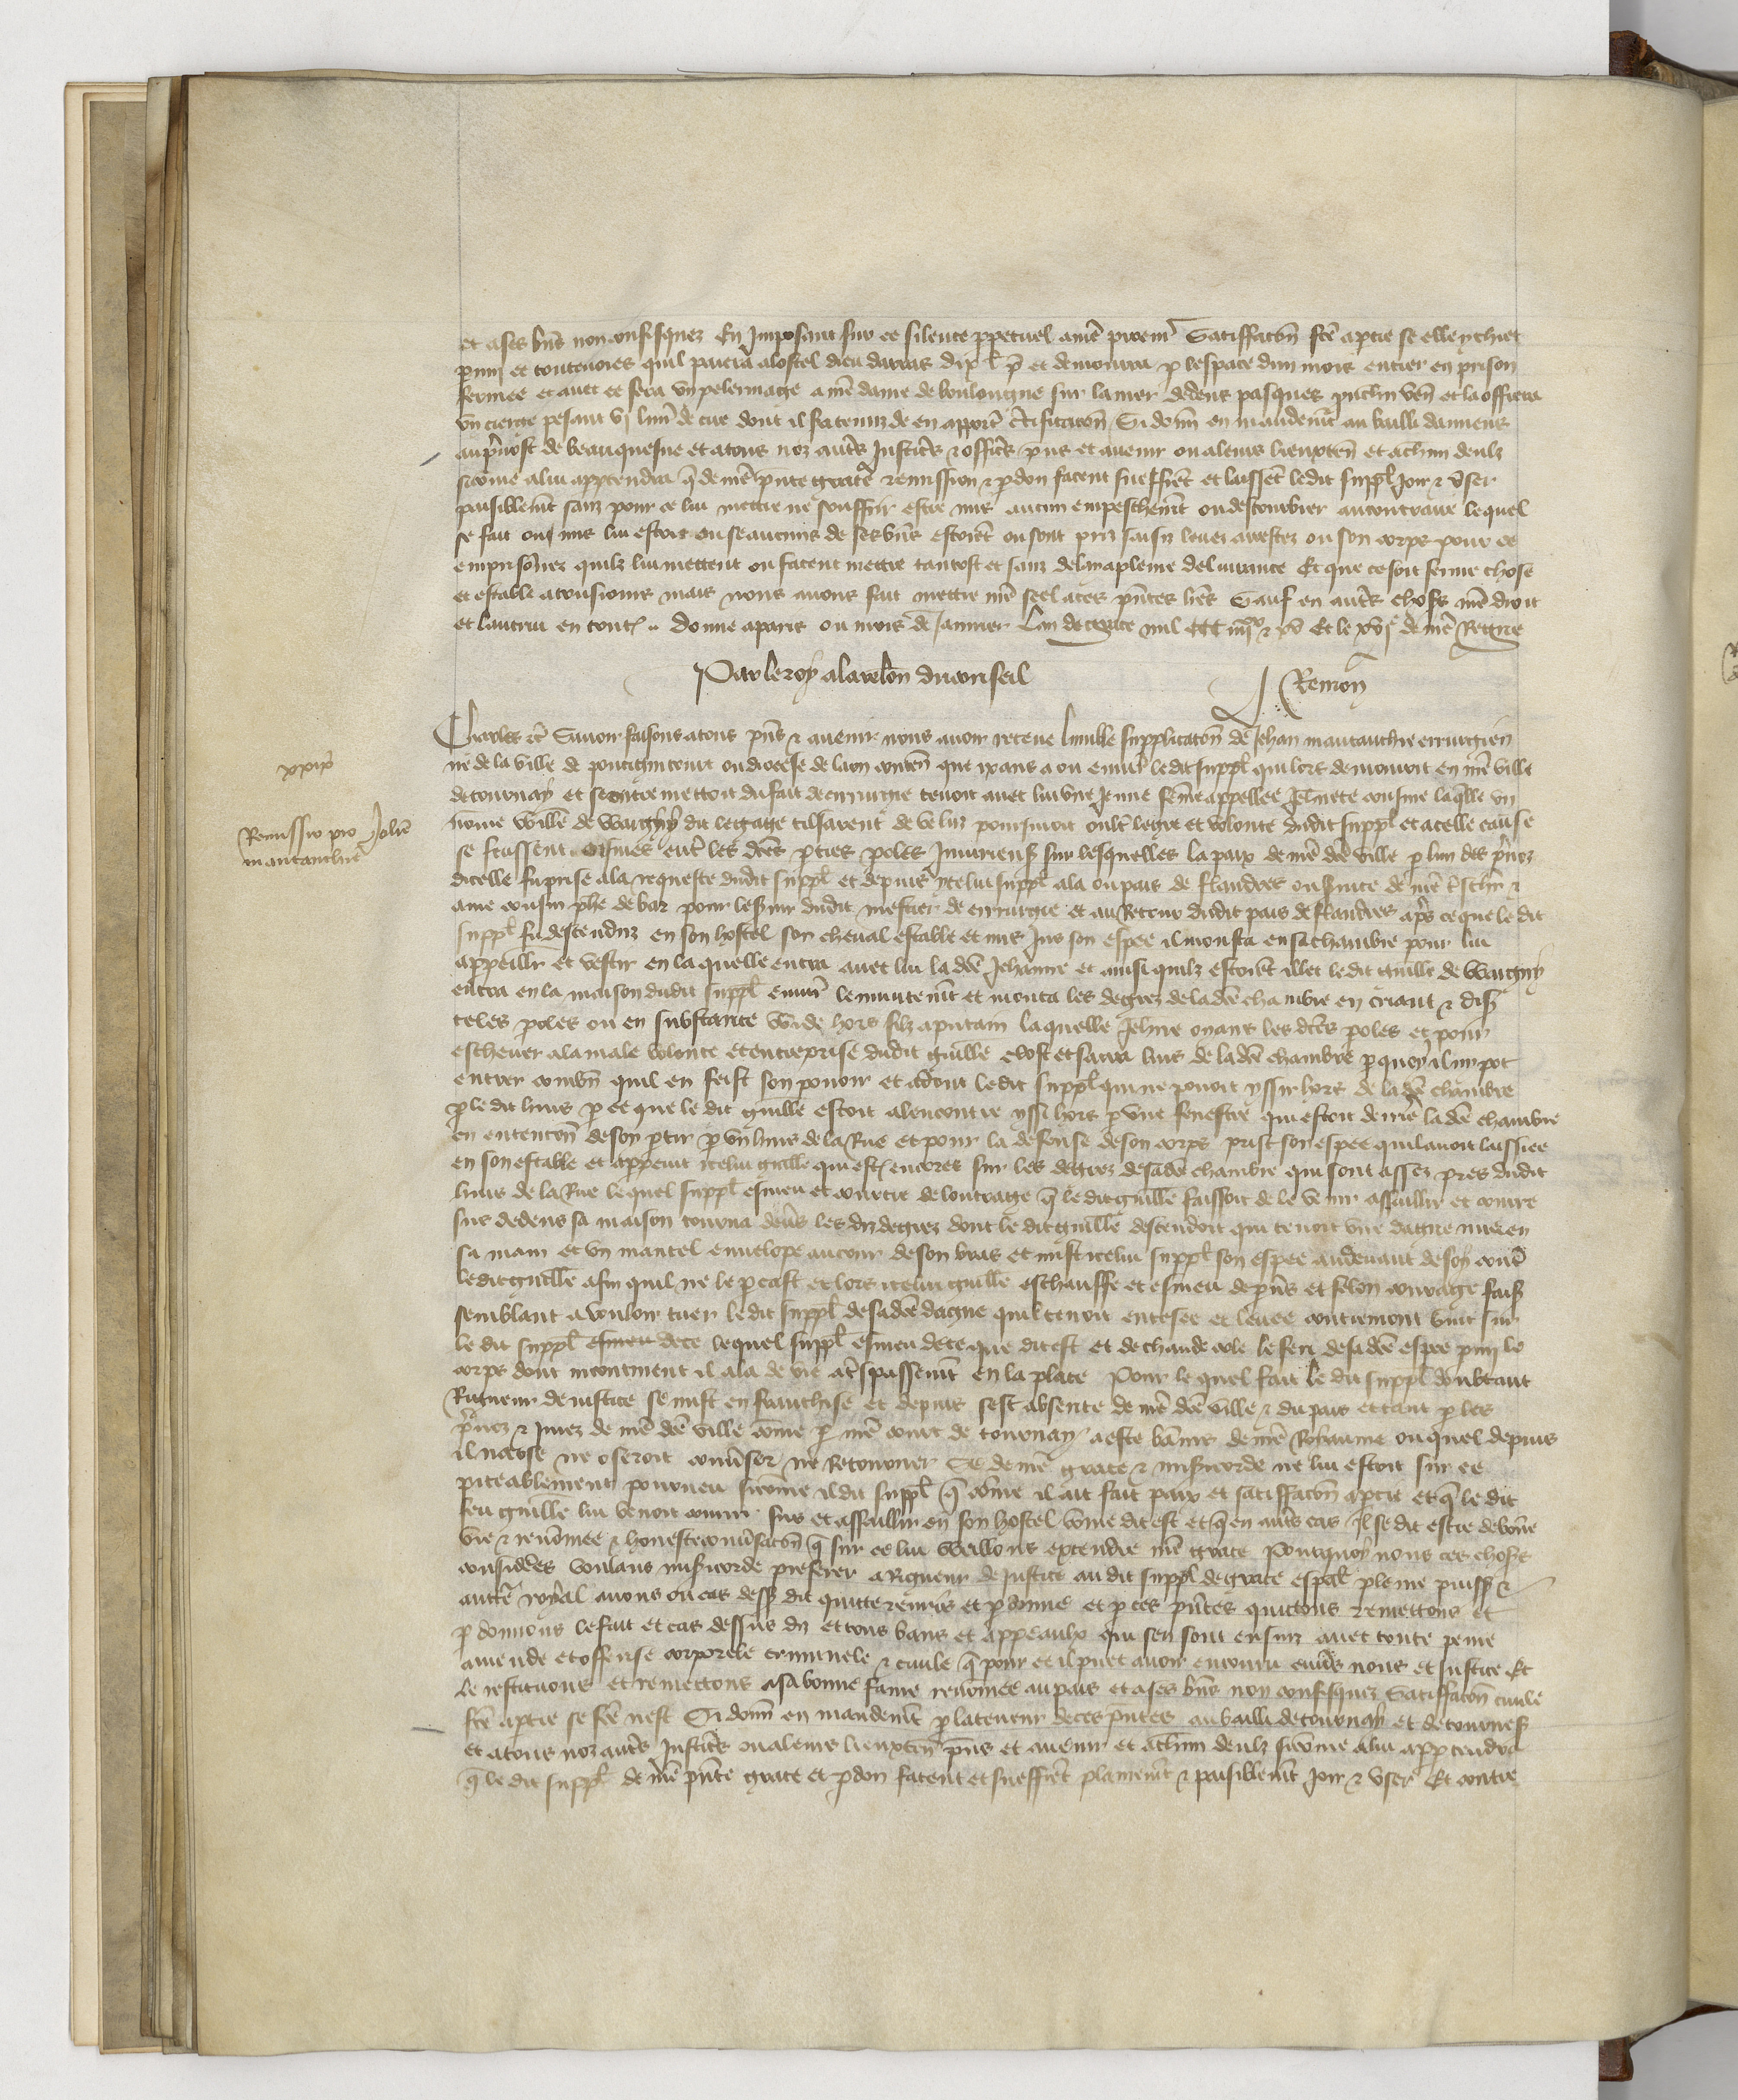 et a ses bñs non confisquez En Imposant sur ce silence ppetuel a nr̃e procur̃ Satiffaccõn fc̃e a ptie se elle y chiet
pmi et toutevoies quil paiera a lostel dieu darras dix l. p̃. et demourra p lespace dun mois entier en prison
fermee et avec ce fera un pelerinage a nr̃e dame de boulongne sur la mer dedens pasques prouchain ven̄ et la offrera
un cierge pesant vj livr̃ de cire dont il sera tenuz de en apport̃ c̃tificacõn Si donñ en mandem̃t au bailli damiens
au p̃vost de beauquesne et a tous noz aut̃s Justic̃s & offic̃s p̃ns et avenir ou a leurs lieuxten̄ et a ch̃un deulz
si cõme a lui apptendra q̃ de nr̃e p̃nte grace remission & pdon facent sueffrent et laissent ledit suppl̃ Joir & user
paisiblem̃t sanz pour ce lui mettre ne souffrir estre mis aucun empeschem̃t ou destourbier au contraire lequel
se fait ou mis lui estoit ou se aucuns de ses bñs estoient ou sont priz saisiz levez arrestez ou son corps pour ce
emprisõnez quilz lui mettent ou facent mettre tantost et sanz delay a pleine delivrance Et que ce soit ferme chose
et estable a tousiours mais nous avons fait mettre nr̃e seel a ces p̃ntes lr̃es Sauf en aut̃s choses nr̃e droit
et lautrui en toutes .. donne a paris ou mois de Janvier Lan de grace mil CCC iiijxx & xv Et le xvje de nr̃e Regne
Par le roy a la relõn du conseil Remon
Charles etc̃ Savoir faisons a tous p̃ns & avenir nous avoir receue lumble supplicacõn de Jehan cirurgien
ne de la ville de ou diocese de laon conten̄ que ix ans a ou environ ledit suppl̃ qui lors demouroit en nr̃e ville
de tournay et se entremettoit du fait de cirurgie tenoit avec lui une Jeune fẽme appellee Jehñete laq̃lle un
xxix
nõme Will̃e de Wargny dit poursuivoit oult̃ le gre et volente dudit suppl̃ et a celle cause
Remissio pro Joh̃e
se feussent meues ent̃ les dc̃es pties poles Injurieuses sur lesquelles la paix de nr̃e dc̃e ville p lun des p̃vez
dicelle fu prise a la requeste dudit suppl̃ et depuis icelui suppl̃ ala ou pais de flandres ou service de nr̃e &
ame cousin ph̃e de bar pour le servir dudit mestier de cirurgie et au Retour dudit pais de flandres ap̃s ce que le dit
suppl̃ fu descenduz en son hostel son cheval estable et mis Jus son espee il monta en sa chambre pour lui
appeillr et vestir en la quelle entra avec lui la dc̃e Jehanne et ainsi quilz estoient illec le dit guill̃e de Wargny
entra en la maison dudit suppl̃ et monta les degrez de la dc̃e chambre en criant & dis̃
teles poles ou en substance Wide hors filz a putain laquelle Jeh̃ne oyans les dc̃es poles et pour
eschever a la male volente et entreprise dudit guill̃e clost et serra luis de la dc̃e chambre p quoy il ny pot
entrer combn̄ quil en feist son povoir et adont ledit suppl̃ qui ne povoit yssir hors de la dc̃e chambre
p le dit huis p ce que le dit guill̃e estoit a lencontre yssi hors p une fenestre qui estoit derrie la dc̃e chambre
en entencõn de son ptir p un huis de la Rue et pour la defense de son corps prist son espee quil avoit laissiee
en son estable et apperceut icelui guill̃e qui estoit encores sur les degrez de sa dc̃e chambre qui sont assez pres dudit
huis de la Rue lequel suppl̃ esmeu et courcie de loutrage q̃ le dit guill̃e faisoit de le venir assaillir et courre
sus dedens sa maison tourna devers les diz degrez dont le dit guill̃e descendoit qui tenoit une dague nue en
sa main et un mantel envelope autour de son bras et mist icelui suppl̃ son espee au devant de soy contre
ledit guill̃e afin quil ne le et lors icelui guill̃e eschauffe et esmeu de et felon courage fais̃
semblant a vouloir tuer le dit suppl̃ de sa dc̃e dague quil tenoit entesee et levee contremont vint sur
le dit suppl̃ esmeu de ce lequel suppl̃ esmeu de ce que dit est et de chaude cole le feri de sa dc̃e espee pmy le
corps dont incontinent il ala de vie a t̃spassem̃t en la place Pour le quel fait le dit suppl̃ doubtant
Rigueur de justice se mist en franchise et depuis sest absente de nr̃e dc̃e ville & du pais et tant p les
p̃voz & Jurez de nr̃e dc̃e ville cõme p nr̃e court de tournay a este bannis de nr̃e Royaume ou quel depuis
il na ose ne oseroit conṽser ne Retourner Se de nr̃e grace & mis̃icorde ne lui estoit sur ce
piteablement pourveu si cõme il dit suppl̃ q̃ cõme il ait fait paix et satiffaccõn a ptie et q̃ le dit
feu guill̃e lui venoit courir sus et assaillir en son hostel cõme dit est et q̃ en aut̃s cas Il se dit estre de bõne
vie & renõmee & honeste conṽsacõn q̃ sur ce lui veillons extendre nr̃e grace Pourquoy nous ces choses
considerees voulans mis̃icorde preferer a Rigueur de Justice au dit suppl̃ de grace esp̃al pleine puiss̃ &
auct̃e royal avons ou cas dess̃ dit quitte remis et pdonne et p ces p̃ntes quittons remettons et
pdonnons le fait et cas dessus diz et tous bans et appeaulx qui sen sont ensuiz avec toute peine
amende et offense corporele criminele & civile q̃ pour ce il puet avoir encouru envers nous et Justice Et
le restituons et remettons a sa bonne fame renõmee au pais et a ses bñs non confisquez Satiffaccõn civile
fc̃e a ptie se fc̃e nest Si donñ en mandem̃t p la teneur de ces p̃ntes au bailli de tournay et de tournes̃
et a tous noz aut̃s Justic̃s ou a leurs lieuxten̄ p̃ns et avenir et a ch̃un deulz si cõme a lui apptendra
q̃ le dit suppl̃ de nr̃e p̃nte grace et pdon facent et sueffrent plainem̃t & paisiblem̃t Joir & user Et contre